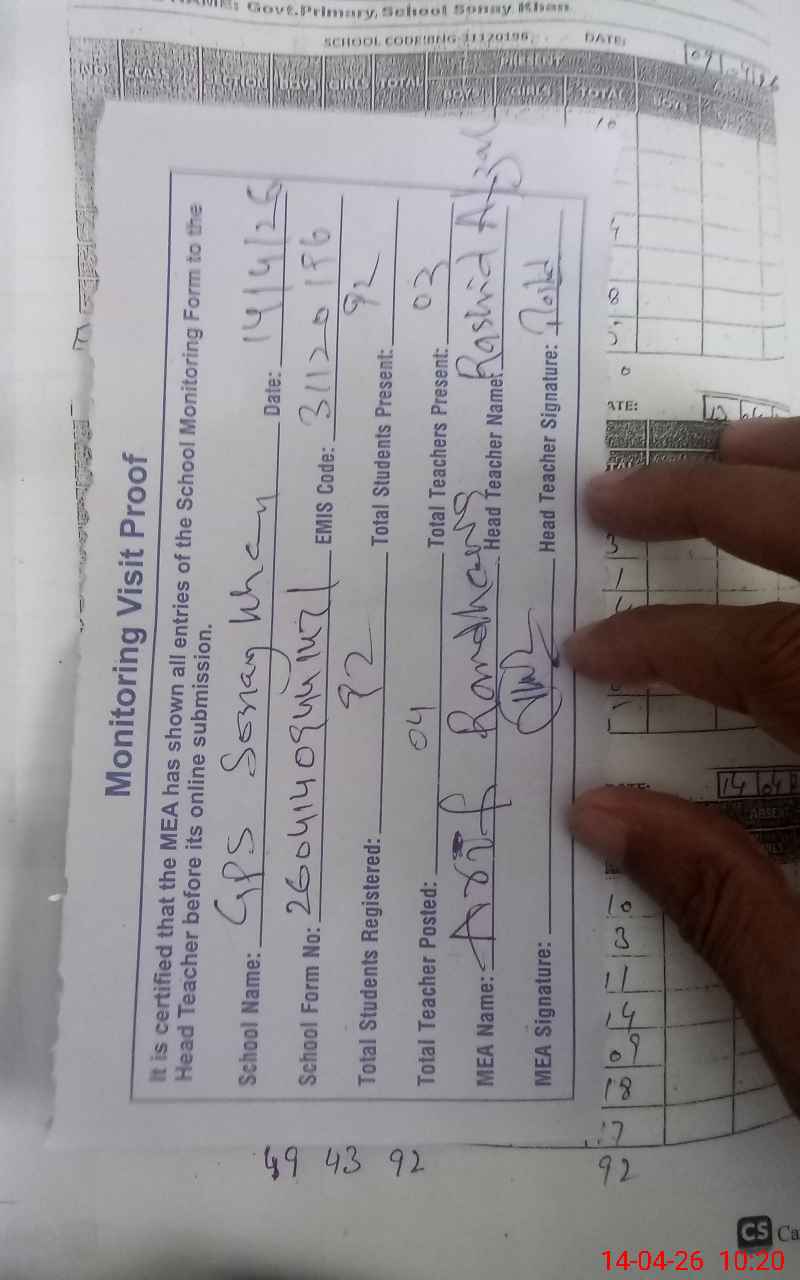 Govt.Primary, School Sonay Khan
SCHOOL CODE:BNG-31120196, DATE:
NO CLASS SECTION BOYS GIRLS TOTAL PRESENT
BOYS GIRLS TOTAL BOYS
Monitoring Visit Proof
It is certified that the MEA has shown all entries of the School Monitoring Form to the
Head Teacher before its online submission.
School Name: GPS Sonay Khan Date: 14/4/26
School Form No: EMIS Code: 31120196
Total Students Registered: 92 Total Students Present: 92
Total Teacher Posted: 04 Total Teachers Present: 03
MEA Name: Arif Randhawa Head Teacher Name: Rashid Afzal
MEA Signature: Head Teacher Signature: Rashid
49 43 92
ATE: 13 04
14 04
ABSENT
10
3
11
14
09
18
17
92
CS Ca
14-04-26 10:20